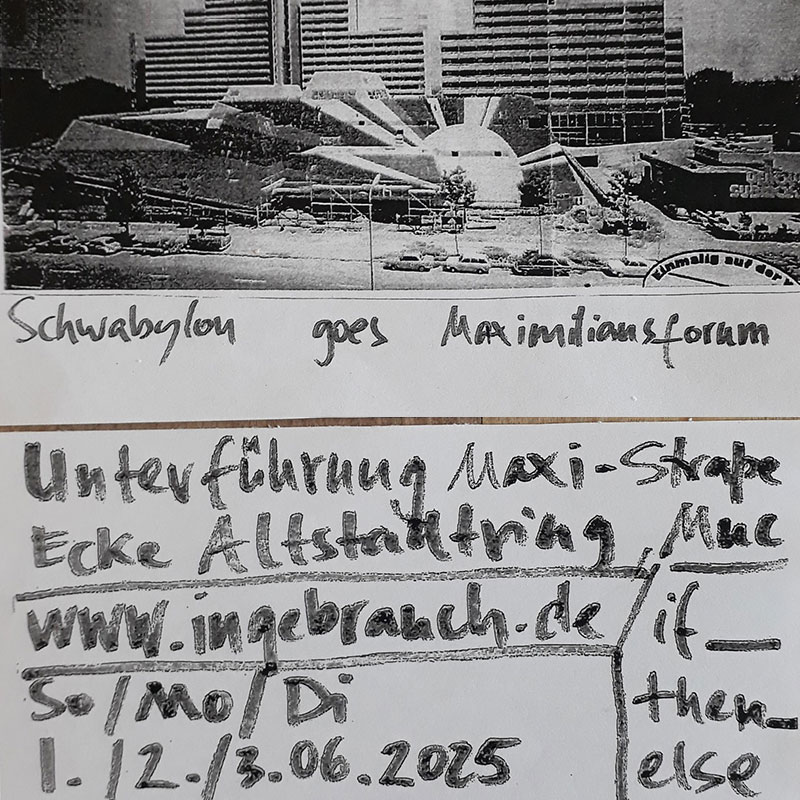 Einmalig auf der
Schwabylon goes Maximiliansforum
Unterführung Maxi-Straße
Ecke Altstadtring, Muc
www.ingebrauch.de / if_
So/Mo/Di then_
1./2./3.06.2025 else